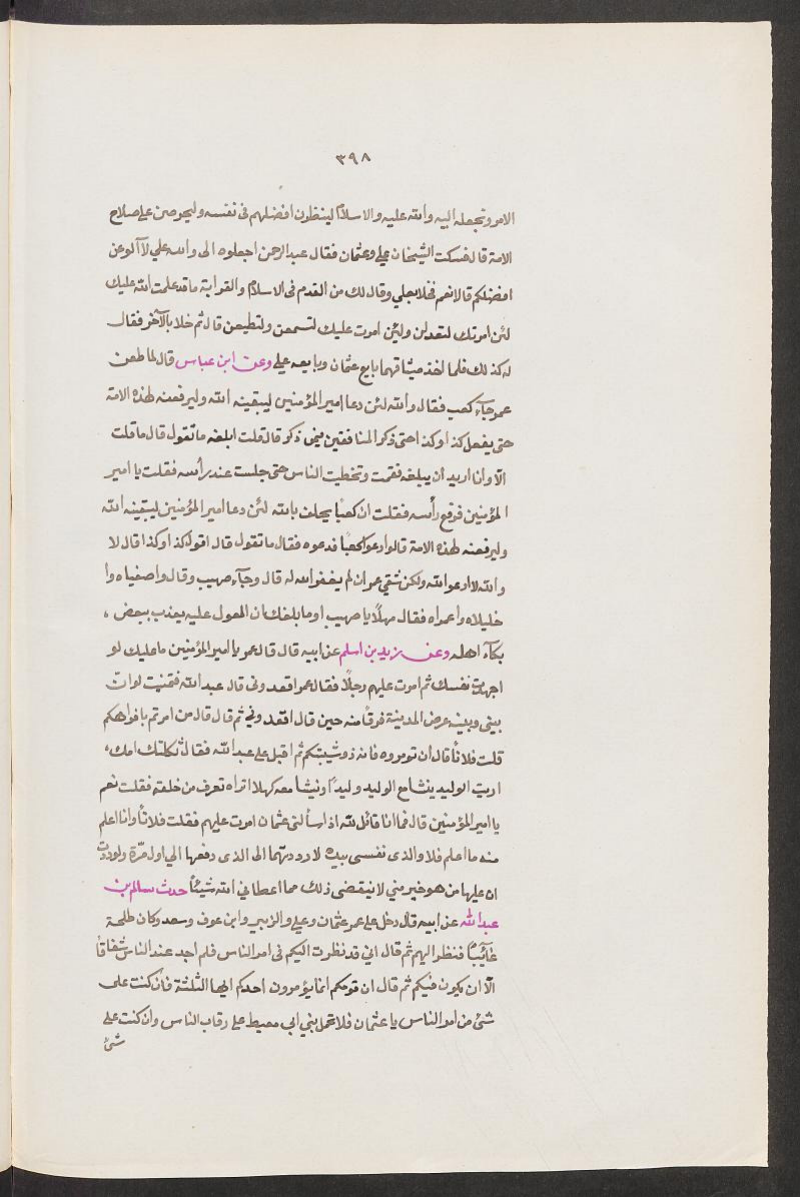 ٣٩٨
الامر ونجعله اليه والله عليه والاسلام لينظرن افضلهم فى نفسه وليحرصن على صلاح
الامة قال فسكت الشيخان على وعثمان فقال عبد الرحمن اجعلوه الى والله علي لا آلو عن
افضلكم قالا نعم فخلا بعلي وقال لك من القدم فى الاسلام والقرابة ما قد علمت الله عليك
لئن امرتك لتعدلن ولئن امرت عليك لتسمعن ولتطيعن قال ثم خلا بالآخر فقال
له كذلك فلما اخذ ميثاقهما بايع عثمان وبايعه علي وعن ابن عباس قال لما طعن
عمر جآء كعب فقال والله لئن دعا امير المؤمنين ليبقينه الله وليرفعنه لهذه الامة
حتى يفعل كذا وكذا حتى ذكر المنافقين فيمن ذكر قال قلت ابلغه ما تقول قال ما قلت
الا وانا اريد ان يبلغه فقمت وتخطيت الناس حتى جلست عند رأسه فقلت يا امير
المؤمنين فرفع رأسه فقلت ان كعبًا يحلف بالله لئن دعا امير المؤمنين ليبقينه الله
وليرفعنه لهذه الامة قال ادعوا كعبًا فدعوه فقال ما تقول قال اقول كذا وكذا قال لا
والله لا ادعو الله ولكن شقي عمر ان لم يغفر الله له قال وجآء صهيب وقال واصفياه وا
خليلاه واعمراه فقال مهلًا يا صهيب اوما بلغك ان المعول عليه يعذب ببعض ،
بكآء اهله وعن زيد بن اسلم عن ابيه قال قال عمر يا امير المؤمنين ما عليك لو
اجهدت نفسك ثم امرت عليهم رجلًا فقال عمر اقعدونى قال عبد الله فتمنيت لو ان
بينى وبينه عرض المدينة فرقًا منه حين قال اقعدوني ثم قال قال من امرتم بافواهكم
قلت فلانًا قال ان تومروه فانه ذو شيبتكم ثم اقبل على عبد الله فقال ثكلتك امك ،
اريت الوليد ينشا مع الوليد وليدًا وينشا معه كهلا اتراه تعرف من خلقه فقلت نعم
يا امير المؤمنين قال فما انا قائل لله اذا سألنى عثمان امرت عليهم فقلت فلانًا وانا اعلم
منه ما اعلم فلا والذى نفسى بيده لارددتهما الى الذى دفعها الي اول مرّة ولوددت
ان عليها من هو خير مني لا ينقضى ذلك مما اعطاني الله شيئًا حدث سالم بن
عبد الله عن ابيه قال دخل على عمر عثمان وعلي والزبير وابن عوف وسعد وكان طلحة
غآئبًا فنظر اليهم ثم قال اني قد نظرت اليكم فى امر الناس فلم اجد عند الناس شقاقًا
الّا ان يكون فيكم ثم قال ان قومكم انما يؤمرون احدكم ايها الثلثة فان كنت على
شئ من امر الناس يا عثمان فلا تحمل بني ابي معيط على رقاب الناس وان كنت على
شئ